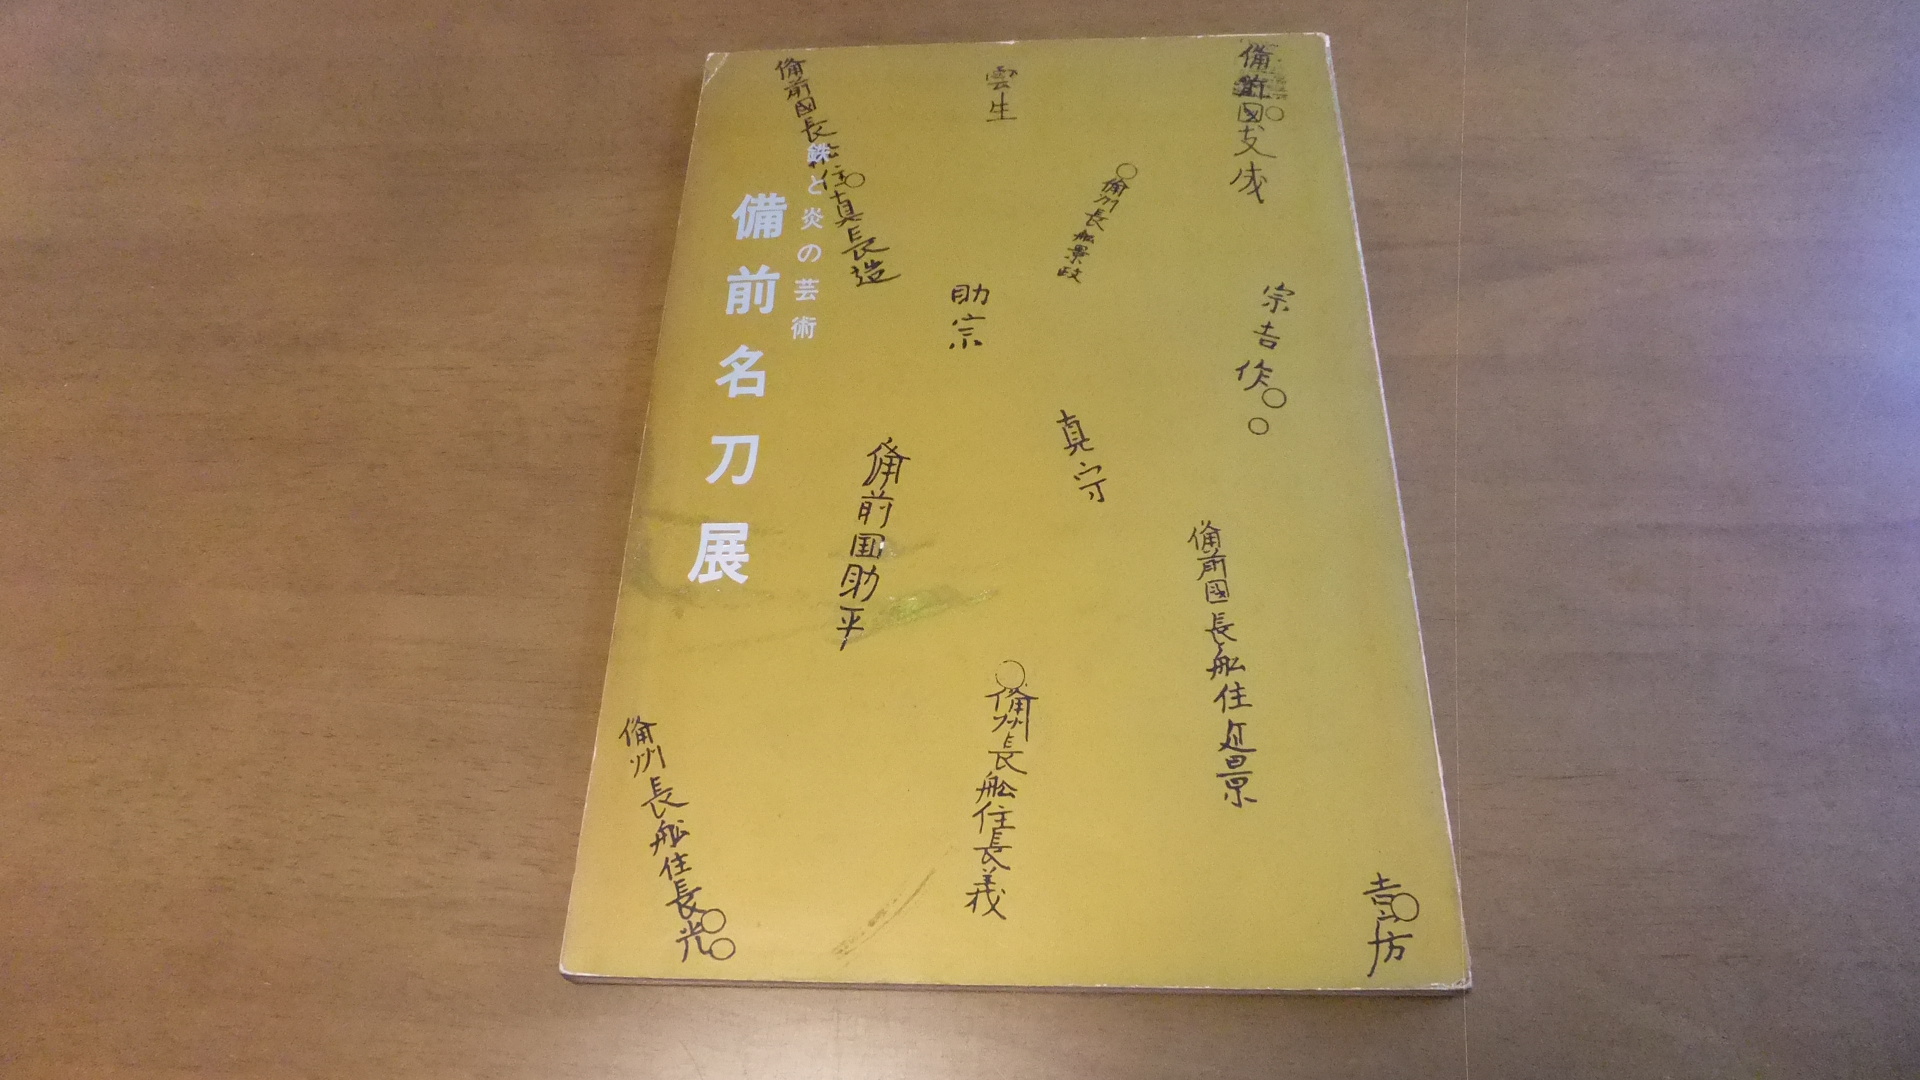 鉄と炎の芸術
備前名刀展
備前國友成
雲生
備前國長船住真長造
備州長船景政
宗吉作
助宗
真守
備前国助平
備前國長船住近景
備州長船住長義
備州長船住長光